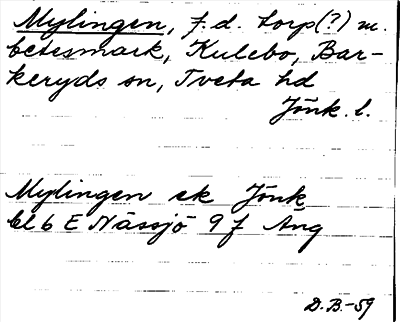 Mylingen, f.d. torp(?) m.
betesmark, Kulebo, Bar-
keryds sn, Tveta hd
Jönk. l.
Mylingen ek Jönk
bl 6 E Nässjö 9 f Äng
D.B.-59